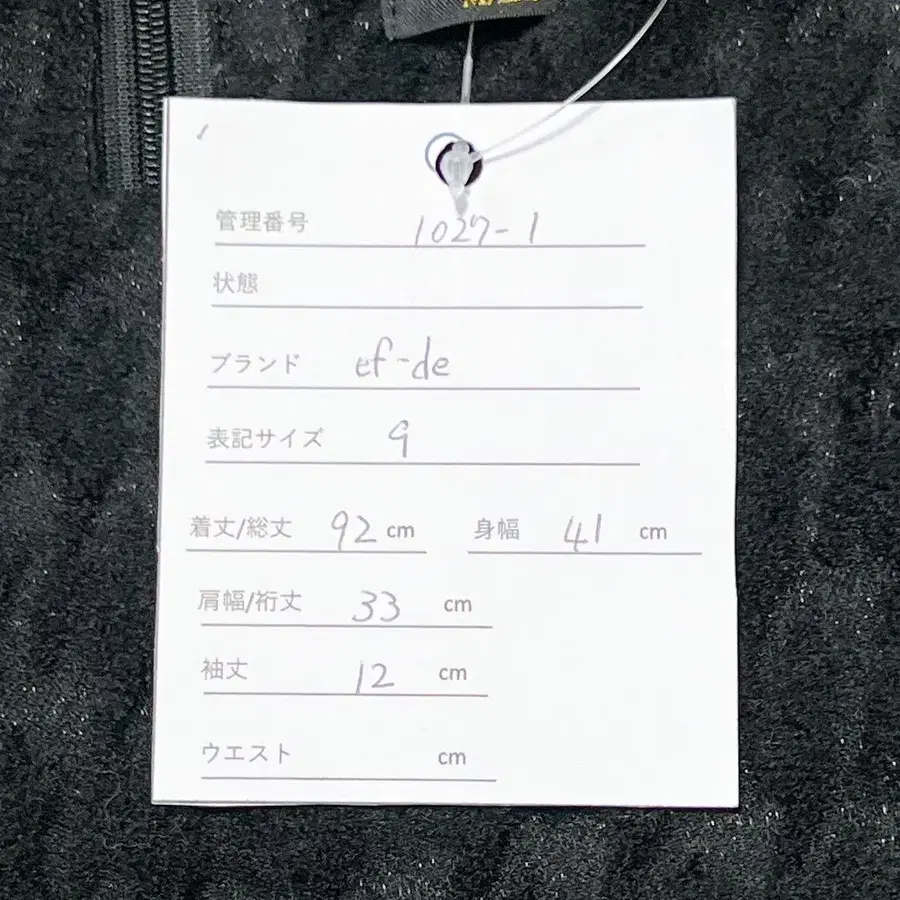 管理番号 1027-1
状態
ブランド ef-de
表記サイズ 9
着丈/総丈 92 cm 身幅 41 cm
肩幅/裄丈 33 cm
袖丈 12 cm
ウエスト cm